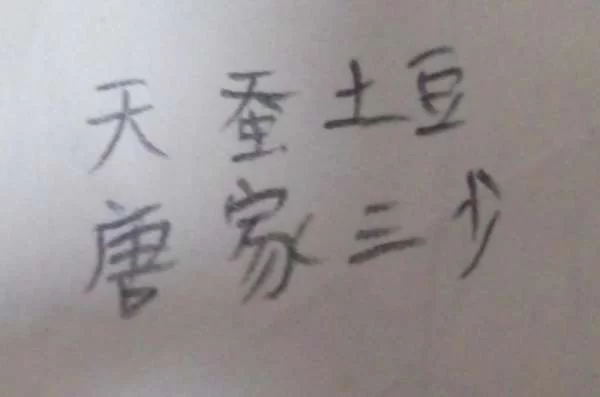 天蚕土豆
唐家三少